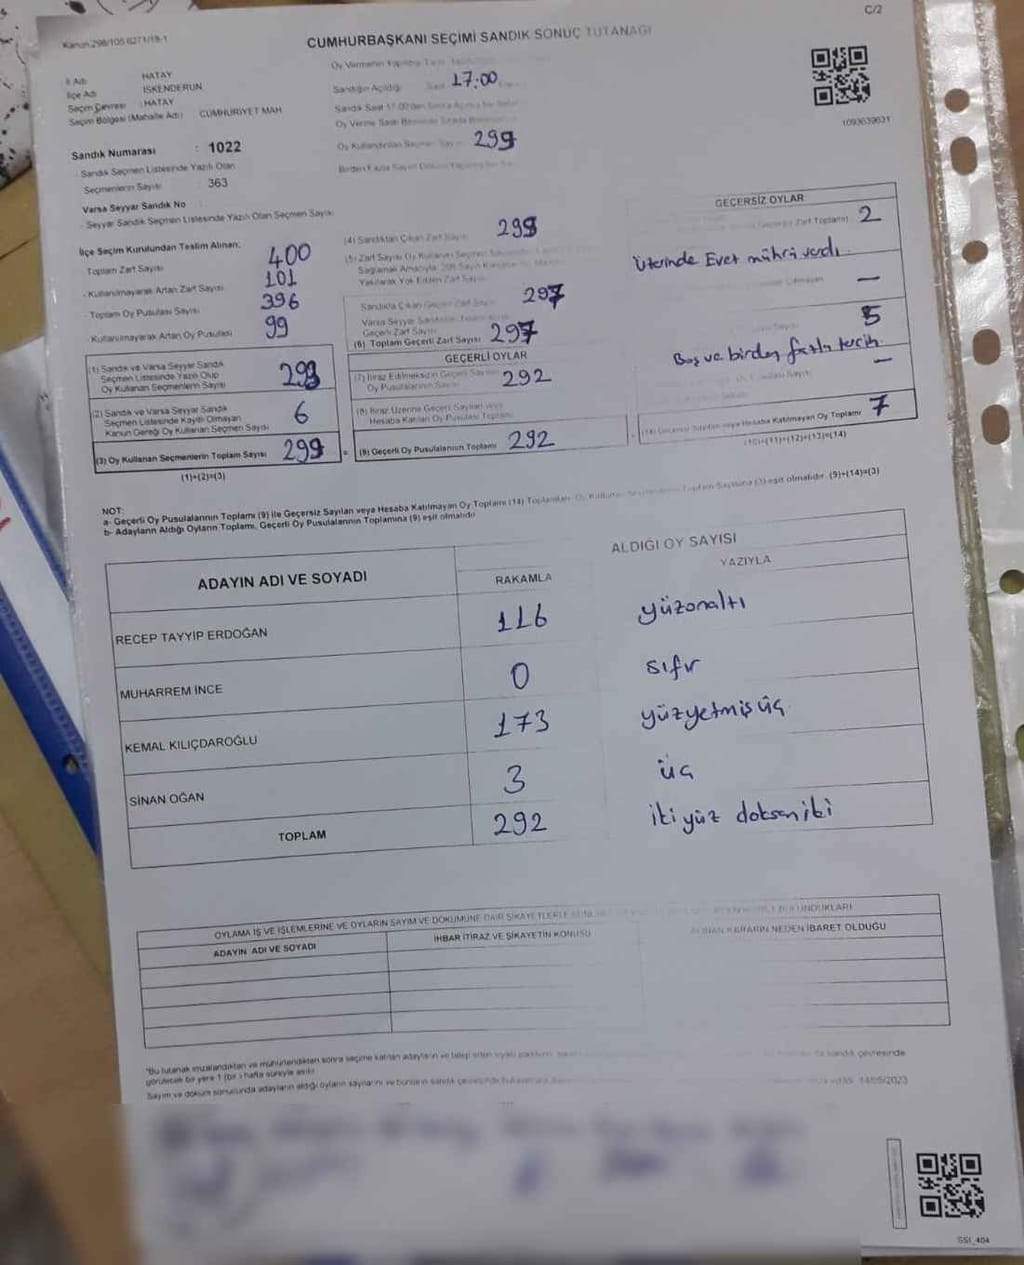 C/2
Kanun 298/105
CUMHURBAŞKANI SEÇİMİ SANDIK SONUÇ TUTANAĞI
İl Adı HATAY
İlçe Adı İSKENDERUN
Seçim Çevresi : HATAY
Seçim Bölgesi (Mahalle Adı) CUMHURİYET MAH
Sandık Numarası : 1022
Sandık Seçmen Listesinde Yazılı Olan
Seçmenlerin Sayısı 363
Varsa Seyyar Sandık No
Seyyar Sandık Seçmen Listesinde Yazılı Olan Seçmen Sayısı
Sandığın Açıldığı Saat 17:00
299
1093639631
İlçe Seçim Kurulundan Teslim Alınan:
Toplam Zarf Sayısı 400
- Kullanılmayarak Artan Zarf Sayısı 101
- Toplam Oy Pusulası Sayısı 396
- Kullanılmayarak Artan Oy Pusulası 99
(1) Sandık ve Varsa Seyyar Sandık
Seçmen Listesinde Yazılı Olup
Oy Kullanan Seçmenlerin Sayısı 293
(2) Sandık ve Varsa Seyyar Sandık
Seçmen Listesinde Kayıtlı Olmayan
Kanun Gereği Oy Kullanan Seçmen Sayısı 6
(3) Oy Kullanan Seçmenlerin Toplam Sayısı 299
(1)+(2)=(3)
(4) Sandıktan Çıkan Zarf Sayısı 299
Sandıkta Çıkan Geçerli Zarf Sayısı 297
Geçerli Zarf Sayısı
(6) Toplam Geçerli Zarf Sayısı 297
GEÇERLİ OYLAR
(7) İtiraz Edilmeksizin Geçerli Sayılan
Oy Pusulalarının Sayısı 292
(8) İtiraz Üzerine Geçerli Sayılan veya
Hesaba Katılan Oy Pusulası Toplamı
(9) Geçerli Oy Pusulalarının Toplamı 292
GEÇERSİZ OYLAR
2
Üzerinde Evet mührü vardı.
—
5
Boş ve birden fazla tercih.
—
(14) Geçersiz Sayılan veya Hesaba Katılmayan Oy Toplamı 7
(10)+(11)+(12)+(13)=(14)
NOT:
a- Geçerli Oy Pusulalarının Toplamı (9) ile Geçersiz Sayılan veya Hesaba Katılmayan Oy Toplamı (14) Toplamları, Oy Kullanan Seçmenlerin Toplam Sayısına (3) eşit olmalıdır. (9)+(14)=(3)
b- Adayların Aldığı Oyların Toplamı, Geçerli Oy Pusulalarının Toplamına (9) eşit olmalıdır
ADAYIN ADI VE SOYADI
ALDIĞI OY SAYISI
RAKAMLA YAZIYLA
RECEP TAYYİP ERDOĞAN 116 yüzonaltı
MUHARREM İNCE 0 sıfır
KEMAL KILIÇDAROĞLU 173 yüzyetmişüç
SİNAN OĞAN 3 üç
TOPLAM 292 ikiyüz doksaniki
OYLAMA İŞ VE İŞLEMLERİNE VE OYLARIN SAYIM VE DÖKÜMÜNE DAİR ŞİKAYETLERLE
ADAYIN ADI VE SOYADI
İHBAR İTİRAZ VE ŞİKAYETİN KONUSU
ALINAN KARARIN NEDEN İBARET OLDUĞU
*Bu tutanak imzalandıktan ve mühürlendikten sonra seçime katılan adayların ve talep eden siyasi partilerin
sandık çevresinde
görülecek bir yere 1 (bir) hafta süreyle asılır
Sayım ve döküm sonucunda adayların aldığı oyların sayılarını ve bunların sandık çevresinde
14/05/2023
SSI_404